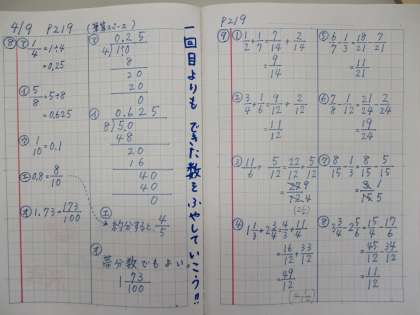 4/9 P219
⑧ ㋐ 1/4 = 1÷4
= 0.25
㋑ 5/8 = 5÷8
= 0.625
㋒ 1/10 = 0.1
㋓ 0.8 = 8/10
㋔ 1.73 = 173/100
㋐ 0.25
4)1.0
8
20
20
0
㋑ 0.625
8)5.0
48
20
16
40
40
0
㋓ 約分すると 4/5
㋔ 帯分数でもよい。
1 73/100
一回目よりも できた数をふやしていこう!!
P219
⑨ ① 1/2 + 1/7 = 7/14 + 2/14
= 9/14
② 3/4 + 1/6 = 9/12 + 2/12
= 11/12
③ 11/6 - 5/12 = 22/12 - 5/12
④ 1 1/3 + 2 3/4 = 4/3 + 11/4
= 16/12 + 33/12
= 49/12
⑤ 6/7 - 1/3 = 18/21 - 7/21
= 11/21
⑥ 7/8 - 1/12 = 21/24 - 2/24
= 19/24
⑦ 8/15 - 1/3 = 8/15 - 5/15
⑧ 3 3/4 - 2 5/6 = 15/4 - 17/6
= 45/12 - 34/12
= 11/12